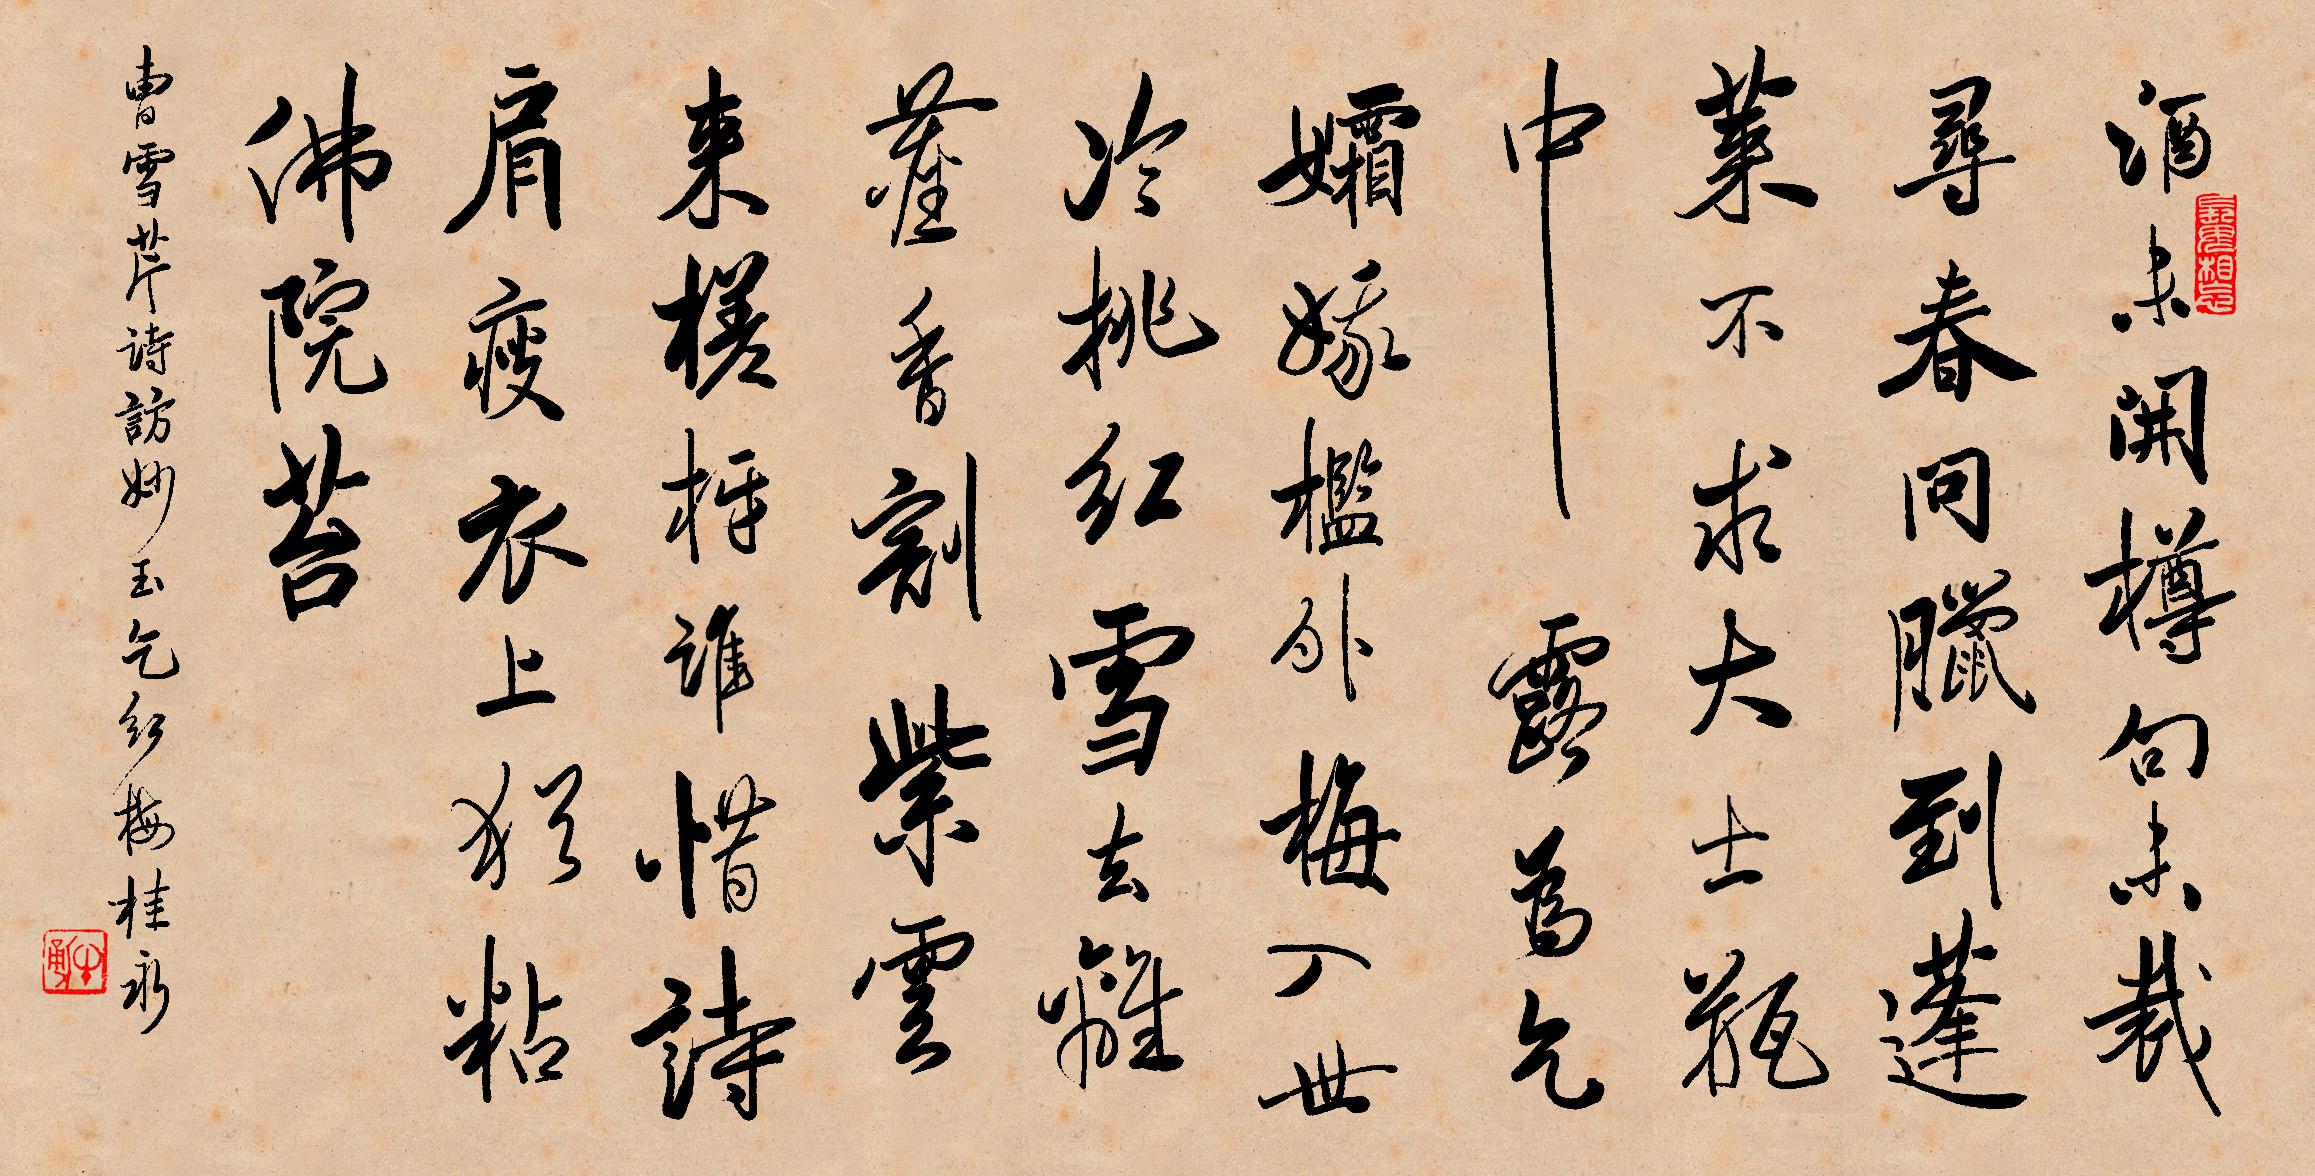 酒未開樽句未裁
尋春問臘到蓬
萊不求大士瓶
中露為乞
孀娥檻外梅入世
冷挑紅雪去離
塵香割紫雲
來槎枒誰惜詩
肩瘦衣上猶粘
佛院苔
曹雪芹詩訪妙玉乞紅梅桂永